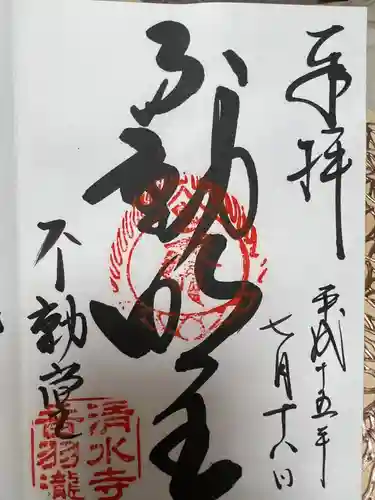 奉拝
平成十五年
七月十八日
不動明王
不動堂
清水寺
音羽瀧